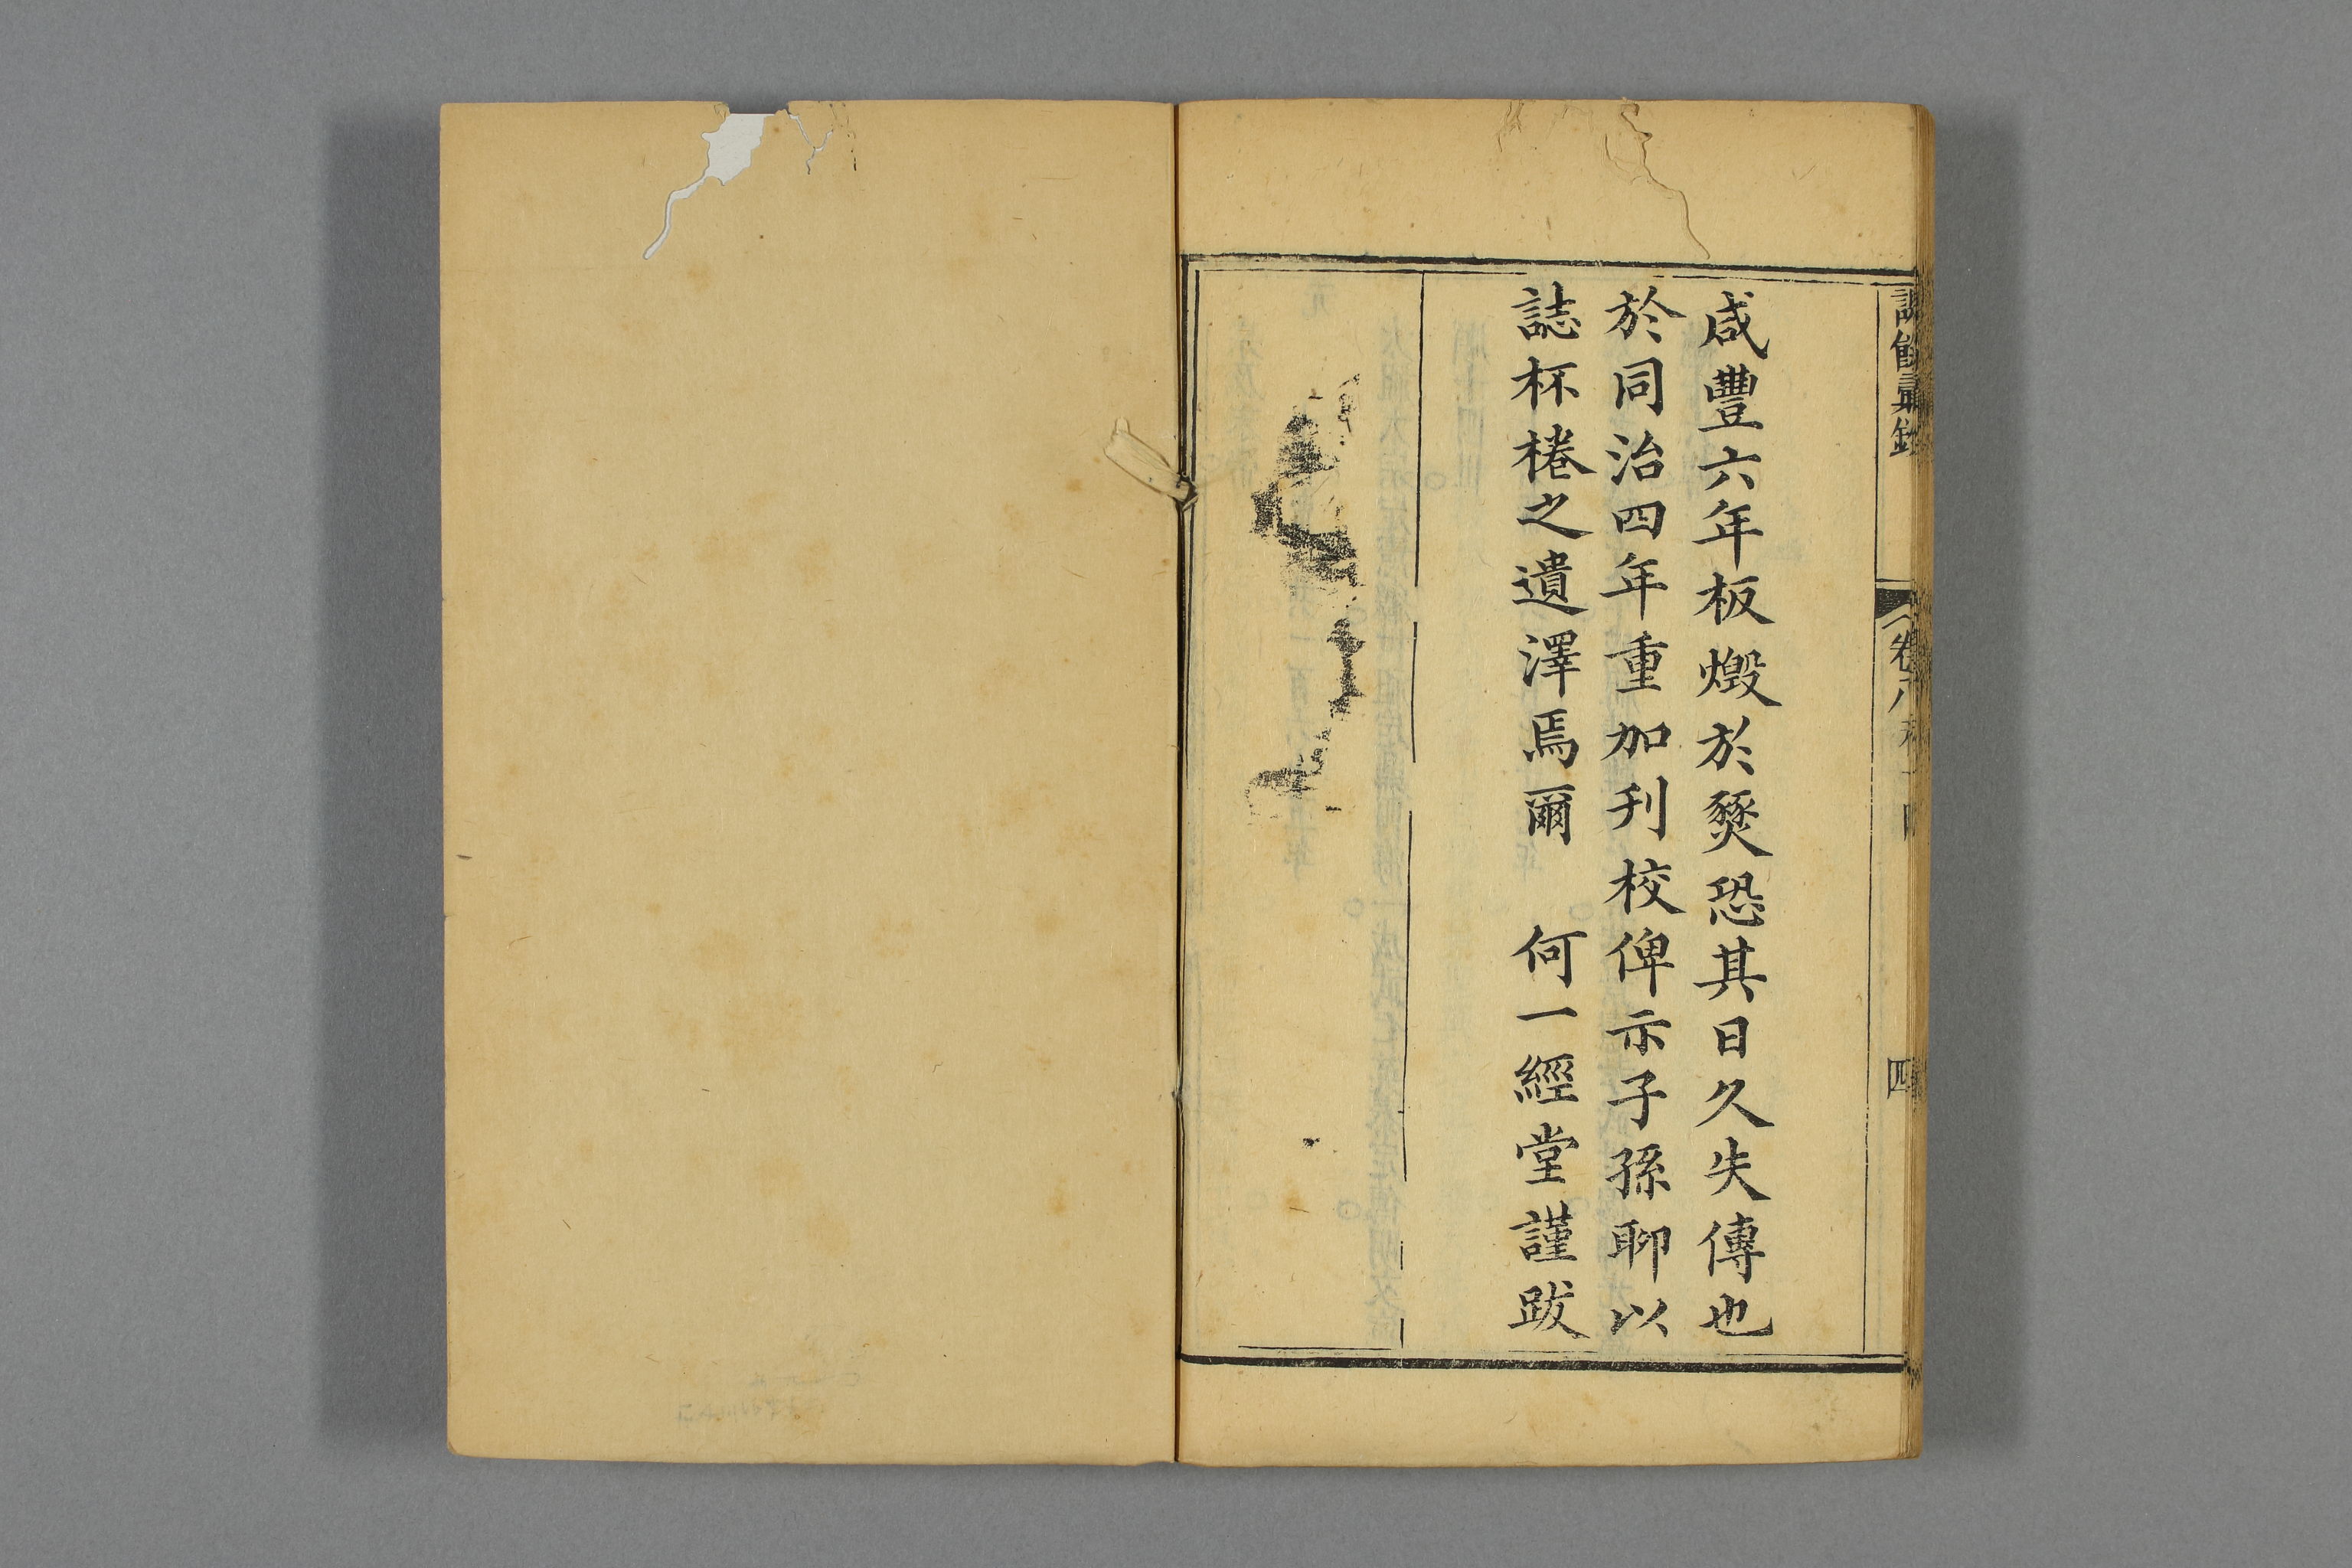 咸豐六年板燬於燹恐其日久失傳也
於同治四年重加刋校俾示子孫聊以
誌杯棬之遺澤焉爾　何一經堂謹跋
餘彙鈔
卷八
四